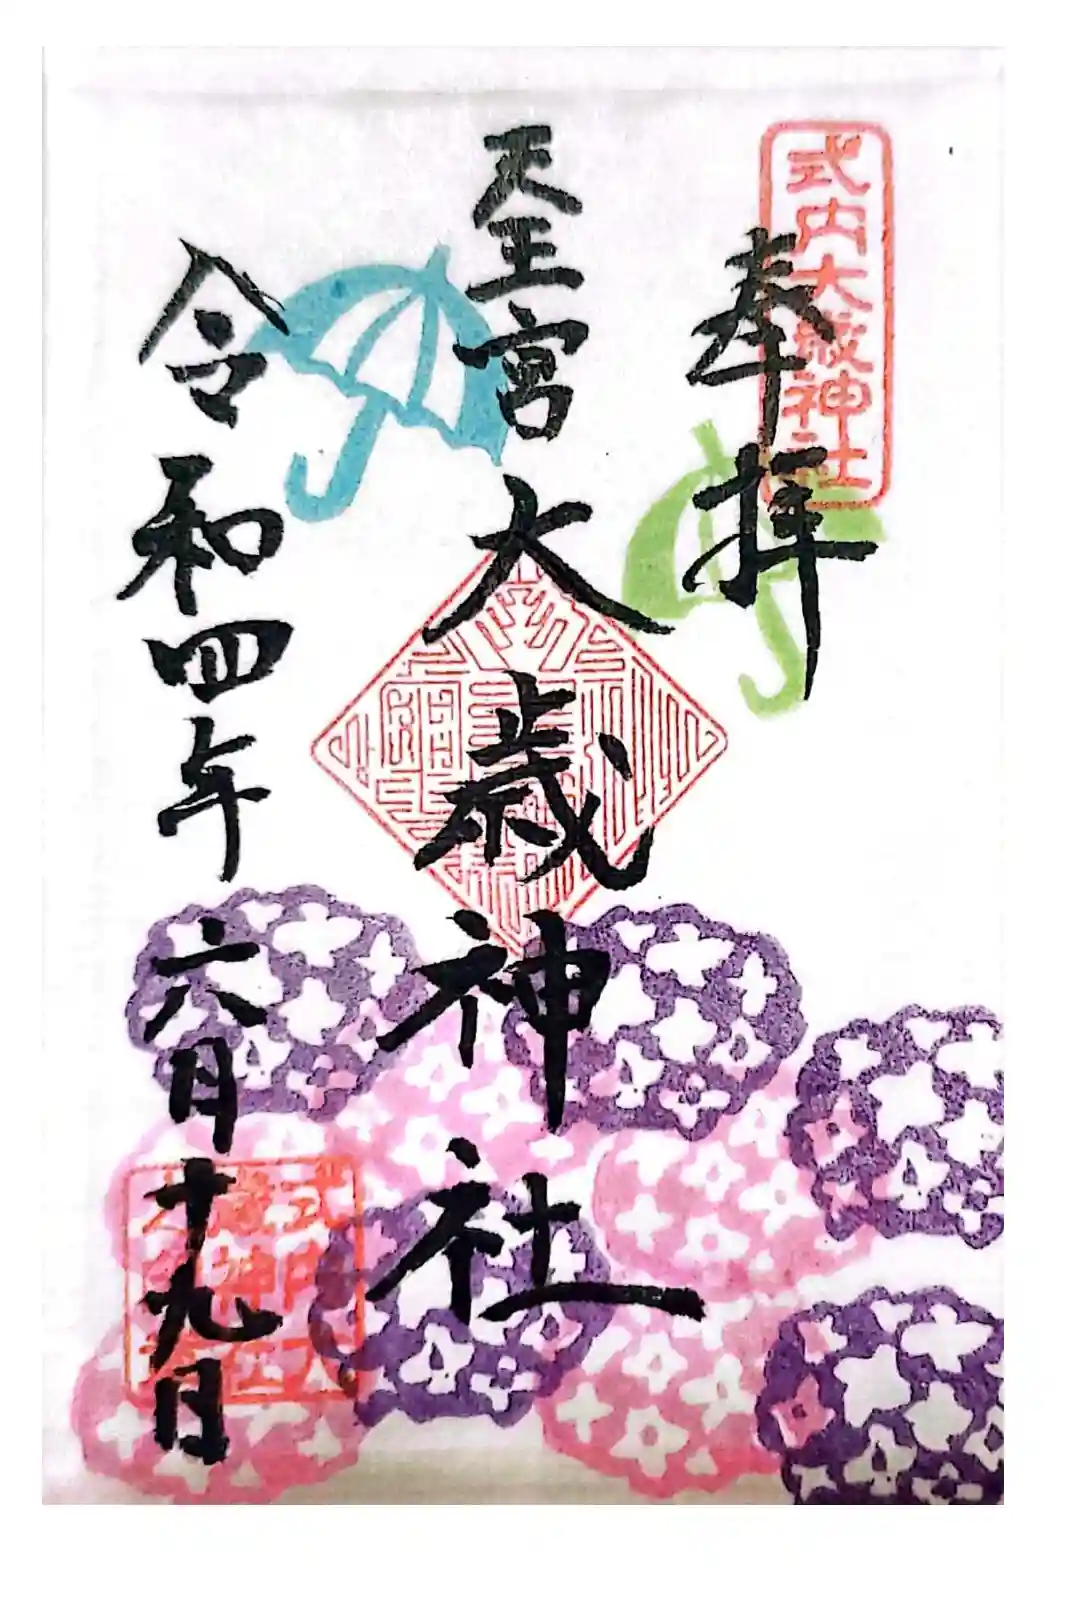 式内大歳神社
奉拝
天王宮
大歳神社
令和四年六月十九日